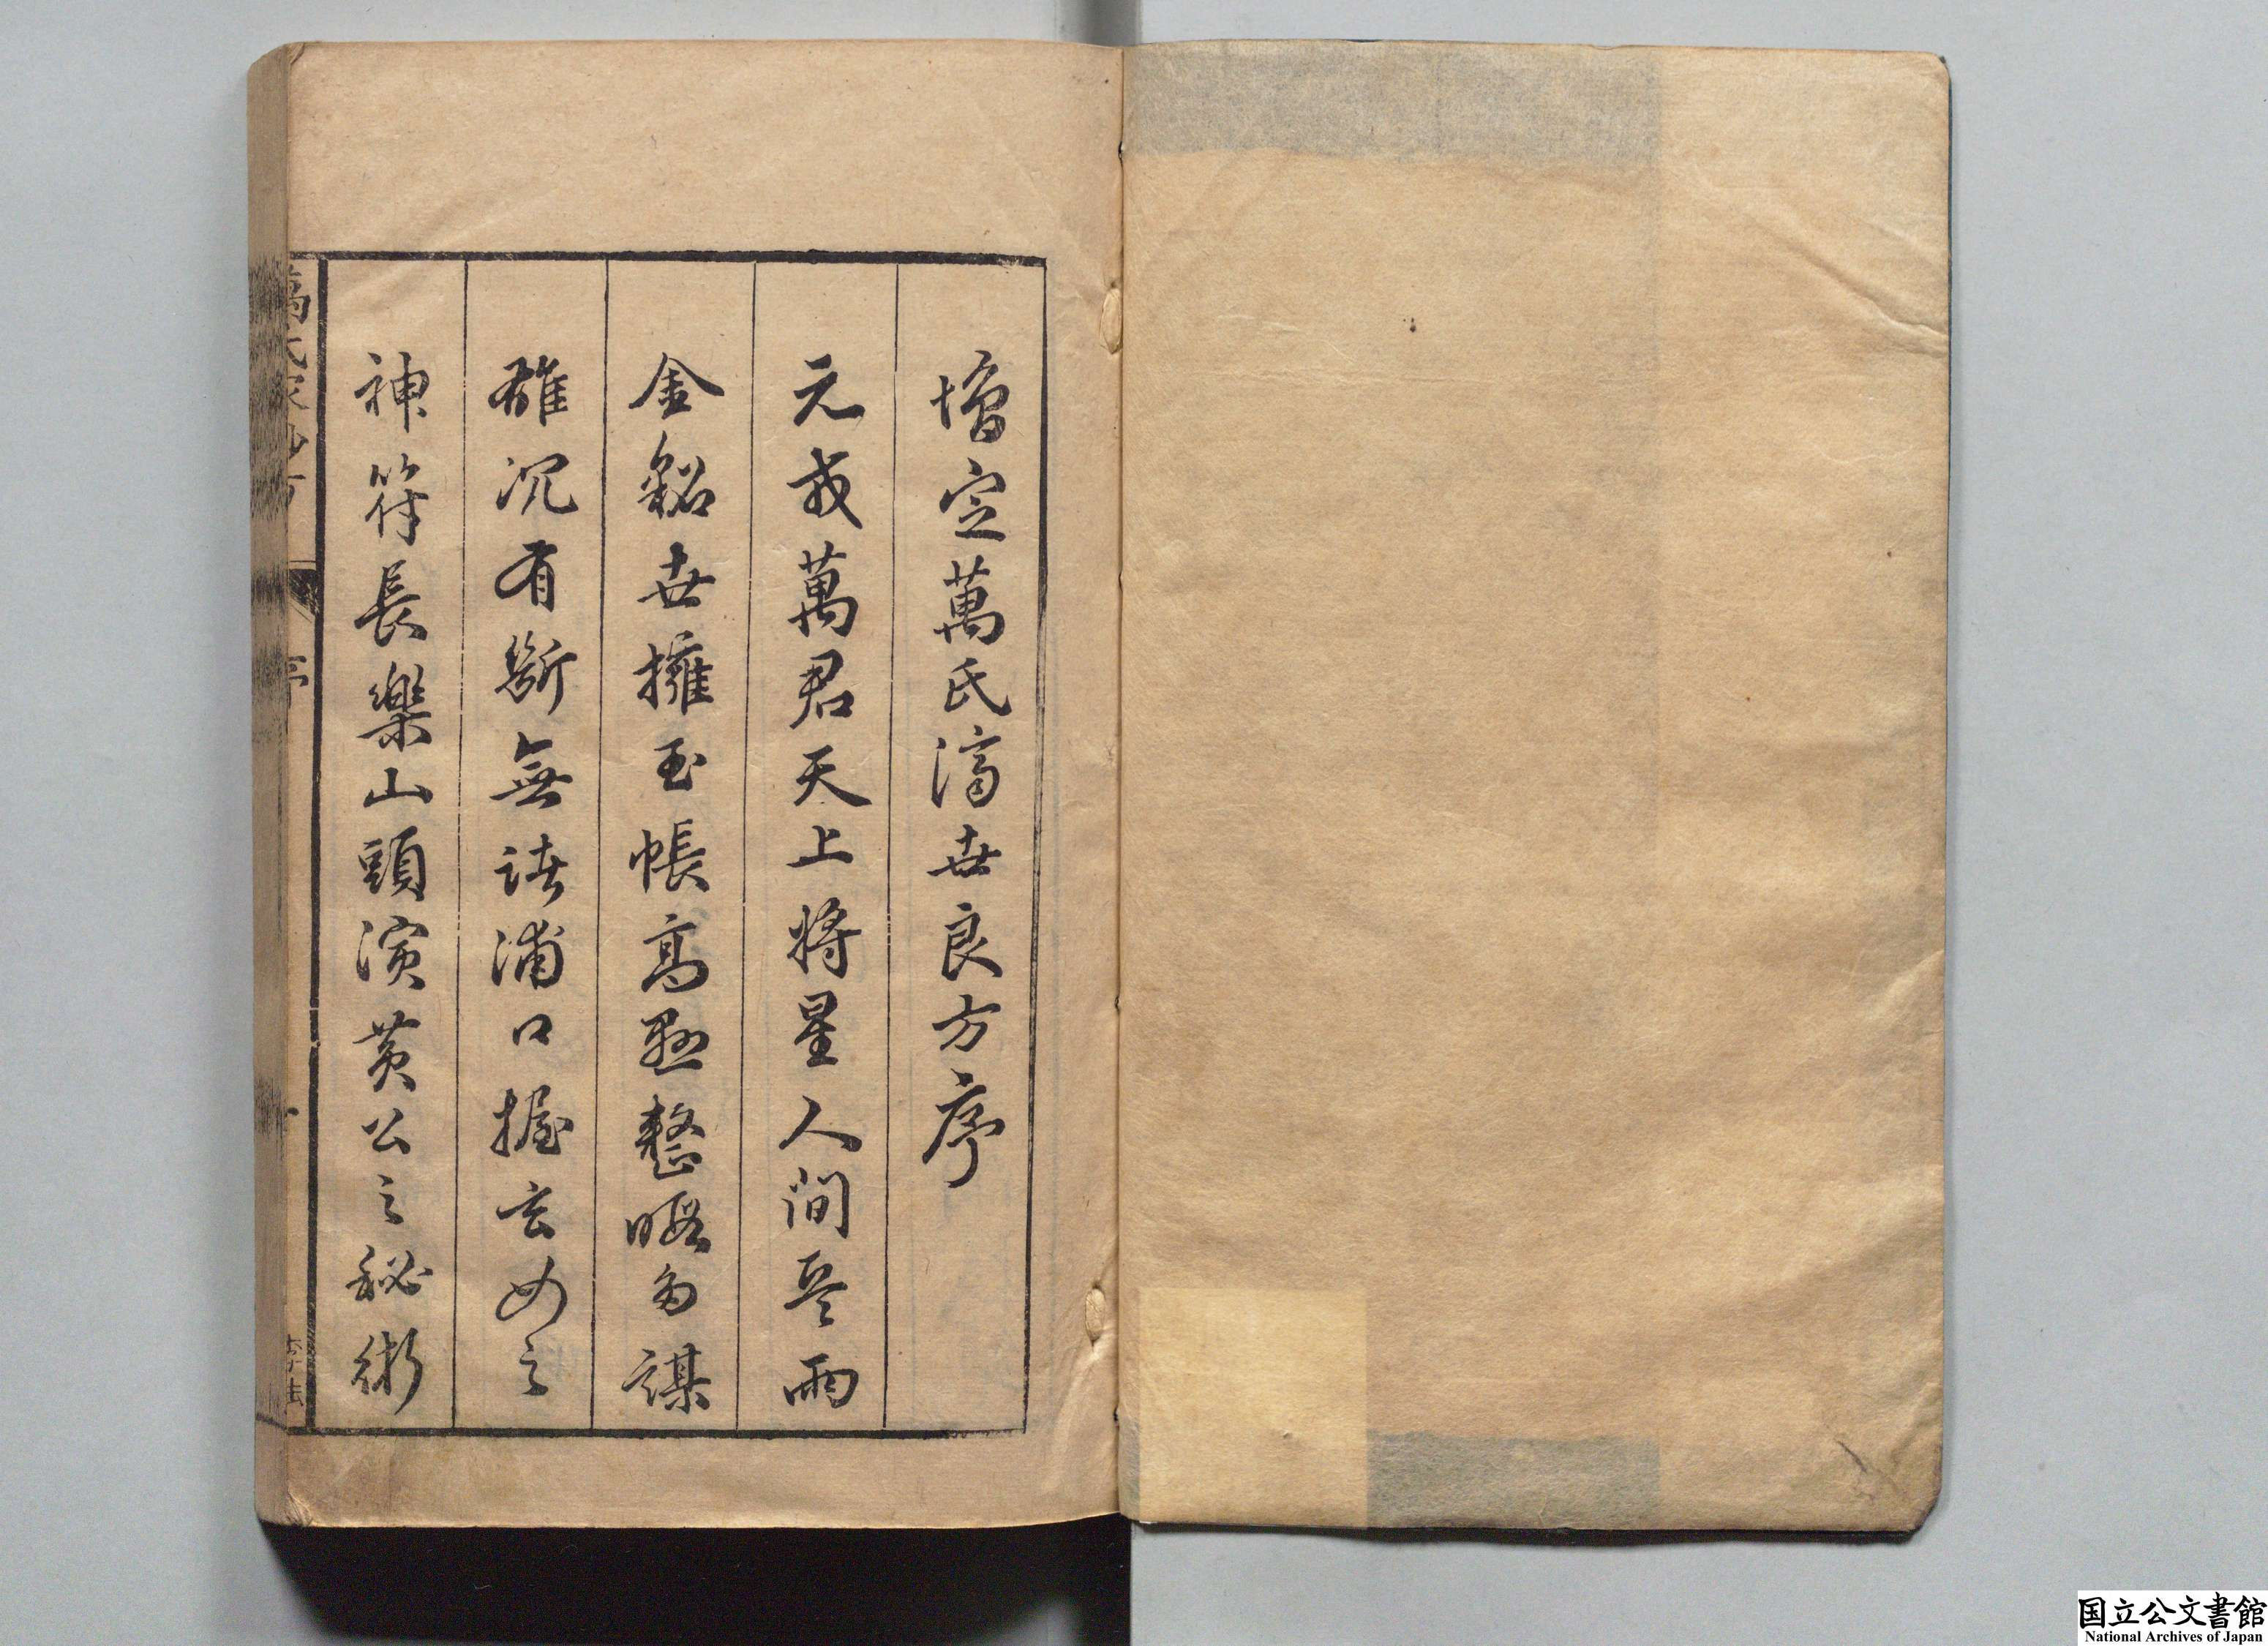 增定萬氏濟世良方序
元戎萬君天上將星人間兵雨
金貂世擁玉帳高懸整暇多謀
雄沉有斷無諸浦口握玄女之
神符長樂山頭演黃公之秘術
萬氏家方
序
国立公文書館
National Archives of Japan